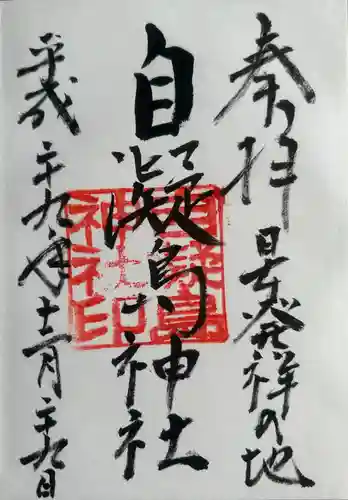 奉拝 日本発祥の地
自凝島神社
平成二十九年十二月二十九日
自凝島神社印